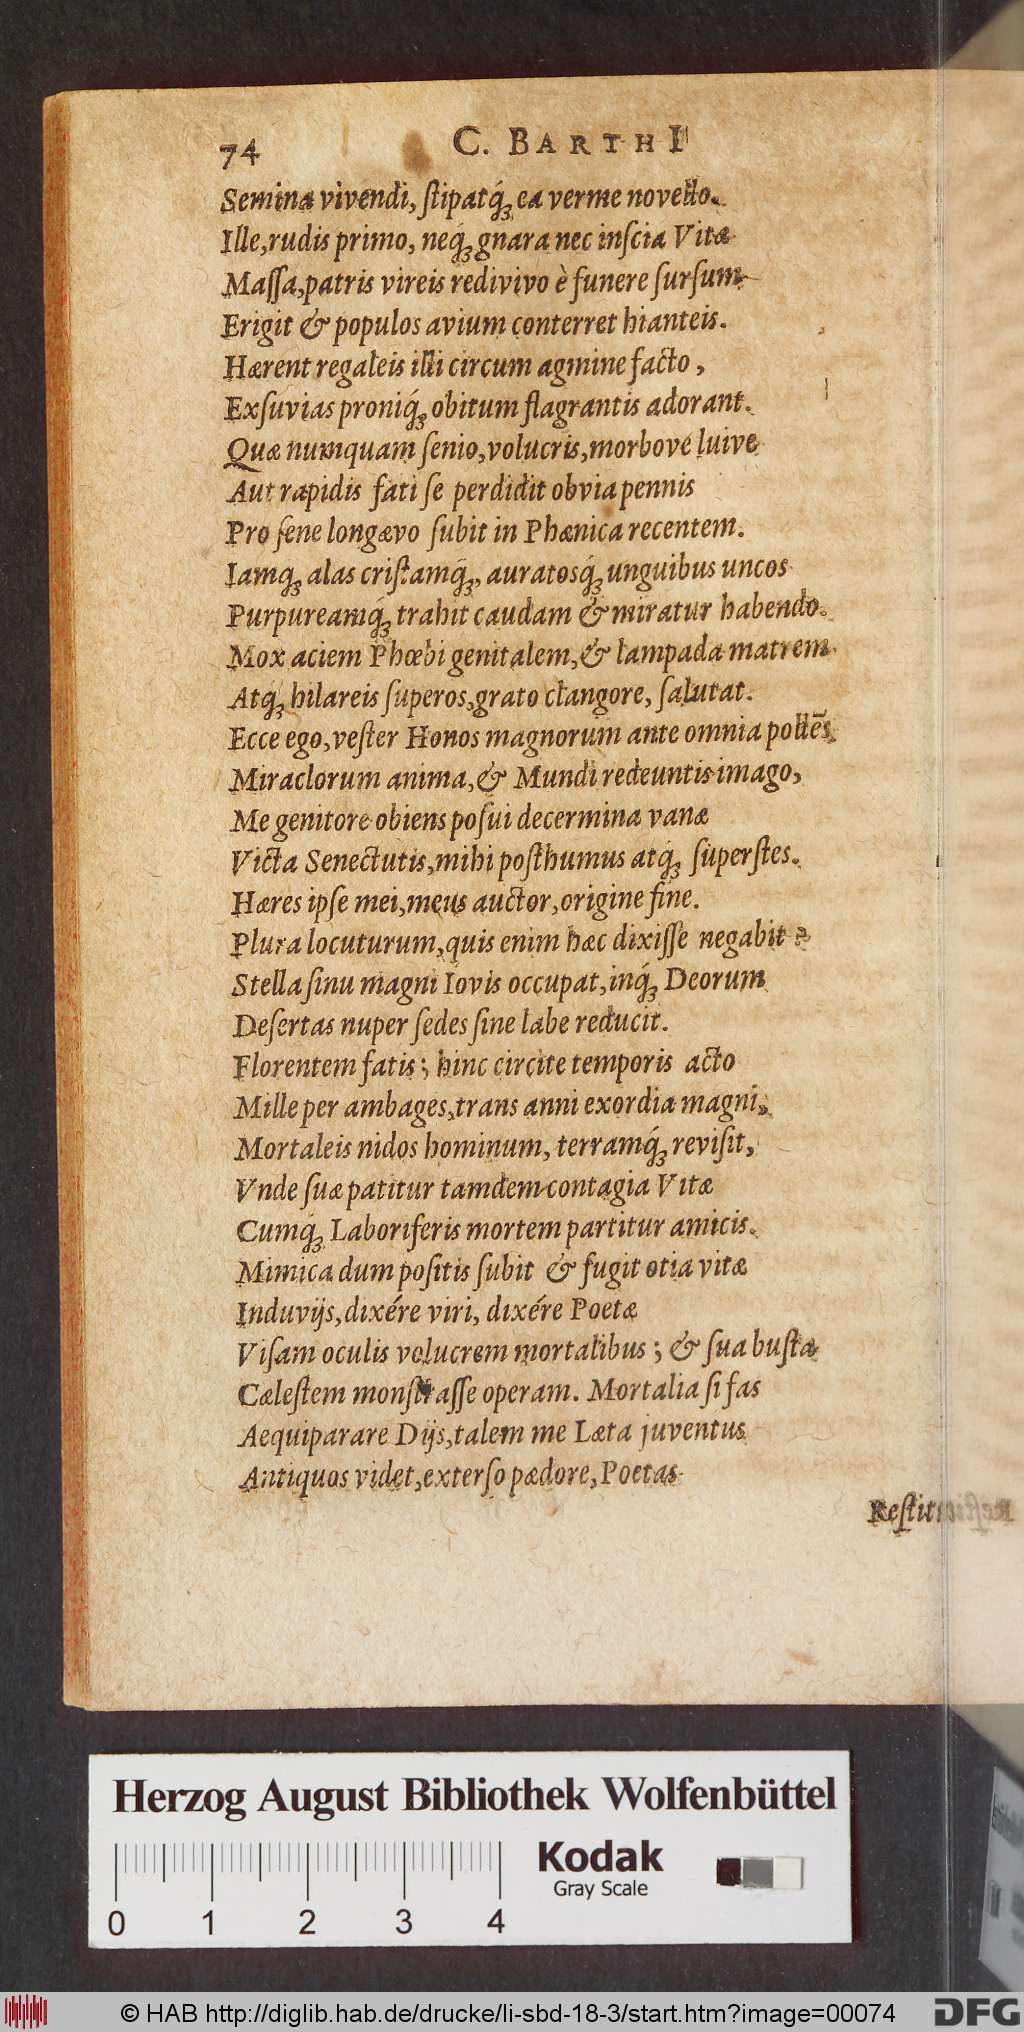 74 C. BARTHI
Semina vivendi, ſtipatq́ꝫ ea verme novello.
Ille, rudis primo, neq́ꝫ gnara nec inſcia Vitæ
Maſſa, patris vireis redivivo è funere ſurſum
Erigit & populos avium conterret hianteis.
Hærent regaleis illi circum agmine facto,
Exſuvias proniq́ꝫ obitum flagrantis adorant.
Quæ numquam ſenio, volucris, morbove luive
Aut rapidis fati ſe perdidit obvia pennis
Pro ſene longævo ſubit in Phænica recentem.
Iamqꝫ alas criſtamq́ꝫ, auratosq́ꝫ unguibus uncos
Purpureamq́ꝫ trahit caudam & miratur habendo.
Mox aciem Phœbi genitalem, & lampada matrem
Atqꝫ hilareis ſuperos, grato clangore, ſalutat.
Ecce ego, veſter Honos magnorum ante omnia pollẽs
Miraclorum anima, & Mundi redeuntis imago,
Me genitore obiens poſui decermina vanæ
Victa Senectutis, mihi poſthumus atq́ꝫ ſuperſtes.
Hæres ipſe mei, meus auctor, origine fine.
Plura locuturum, quis enim hæc dixiſſe negabit?
Stella ſinu magni Iovis occupat, inq́ꝫ Deorum
Deſertas nuper ſedes ſine labe reducit.
Florentem fatis; hinc circite temporis acto
Mille per ambages, trans anni exordia magni,
Mortaleis nidos hominum, terramq́ꝫ reviſit,
Vnde ſuæ patitur tamdem contagia Vitæ
Cumq́ꝫ Laboriferis mortem partitur amicis.
Mimica dum poſitis ſubit & fugit otia vitæ
Induvijs, dixére viri, dixére Poetæ
Viſam oculis volucrem mortalibus; & ſua buſta
Cæleſtem monſtraſſe operam. Mortalia ſi fas
Aequiparare Dijs, talem me Læta juventus
Antiquos videt, exterſo pædore, Poetas
Herzog August Bibliothek Wolfenbüttel
Kodak
Gray Scale
0 1 2 3 4
© HAB http://diglib.hab.de/drucke/li-sbd-18-3/start.htm?image=00074
DFG